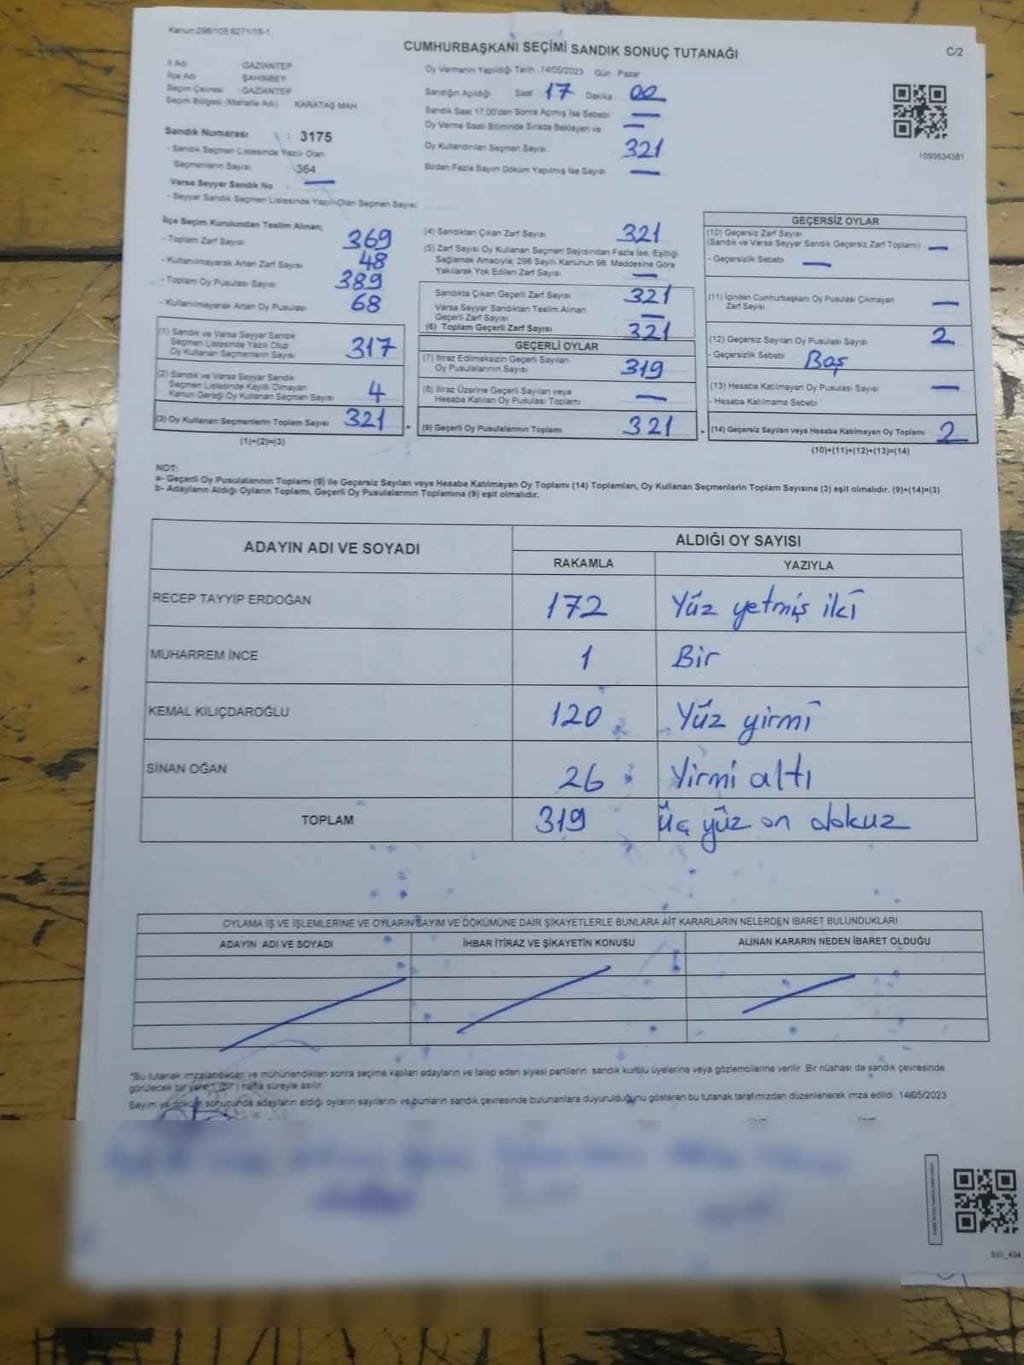 Kanun:298/105.6271/16-1
CUMHURBAŞKANI SEÇİMİ SANDIK SONUÇ TUTANAĞI
C/2
İl Adı : GAZİANTEP
İlçe Adı : ŞAHİNBEY
Seçim Çevresi : GAZİANTEP
Seçim Bölgesi (Mahalle Adı) : KARATAŞ MAH
Sandık Numarası : 3175
- Sandık Seçmen Listesinde Yazılı Olan
Seçmenlerin Sayısı : 364
Varsa Seyyar Sandık No —
- Seyyar Sandık Seçmen Listesinde Yazılı Olan Seçmen Sayısı:
Oy Vermenin Yapıldığı Tarih :14/05/2023 Gün Pazar
Sandığın Açıldığı Saat 17 Dakika 00
Sandık Saat 17.00'den Sonra Açılmış İse Sebebi —
Oy Verme Saati Bitiminde Sırada Bekleyen ve —
Oy Kullandırılan Seçmen Sayısı 321
Birden Fazla Sayım Döküm Yapılmış İse Sayısı —
1093634381
İlçe Seçim Kurulundan Teslim Alınan;
- Toplam Zarf Sayısı 369
- Kullanılmayarak Artan Zarf Sayısı 48
- Toplam Oy Pusulası Sayısı 389
- Kullanılmayarak Artan Oy Pusulası 68
(1) Sandık ve Varsa Seyyar Sandık
Seçmen Listesinde Yazılı Olup
Oy Kullanan Seçmenlerin Sayısı 317
(2) Sandık ve Varsa Seyyar Sandık
Seçmen Listesinde Kayıtlı Olmayan
Kanun Gereği Oy Kullanan Seçmen Sayısı 4
(3) Oy Kullanan Seçmenlerin Toplam Sayısı 321
(1)+(2)=(3)
(4) Sandıktan Çıkan Zarf Sayısı 321
(5) Zarf Sayısı Oy Kullanan Seçmen Sayısından Fazla İse, Eşitliği
Sağlamak Amacıyla, 298 Sayılı Kanunun 98. Maddesine Göre
Yakılarak Yok Edilen Zarf Sayısı —
Sandıkta Çıkan Geçerli Zarf Sayısı 321
Varsa Seyyar Sandıktan Teslim Alınan
Geçerli Zarf Sayısı —
(6) Toplam Geçerli Zarf Sayısı 321
GEÇERLİ OYLAR
(7) İtiraz Edilmeksizin Geçerli Sayılan
Oy Pusulalarının Sayısı 319
(8) İtiraz Üzerine Geçerli Sayılan veya
Hesaba Katılan Oy Pusulası Toplamı —
(9) Geçerli Oy Pusulalarının Toplamı 321
GEÇERSİZ OYLAR
(10) Geçersiz Zarf Sayısı
(Sandık ve Varsa Seyyar Sandık Geçersiz Zarf Toplamı) —
- Geçersizlik Sebebi —
(11) İçinden Cumhurbaşkanı Oy Pusulası Çıkmayan
Zarf Sayısı —
(12) Geçersiz Sayılan Oy Pusulası Sayısı 2
- Geçersizlik Sebebi Boş
(13) Hesaba Katılmayan Oy Pusulası Sayısı —
- Hesaba Katılmama Sebebi
(14) Geçersiz Sayılan veya Hesaba Katılmayan Oy Toplamı 2
(10)+(11)+(12)+(13)=(14)
NOT:
a- Geçerli Oy Pusulalarının Toplamı (9) ile Geçersiz Sayılan veya Hesaba Katılmayan Oy Toplamı (14) Toplamları, Oy Kullanan Seçmenlerin Toplam Sayısına (3) eşit olmalıdır. (9)+(14)=(3)
b- Adayların Aldığı Oyların Toplamı, Geçerli Oy Pusulalarının Toplamına (9) eşit olmalıdır.
ADAYIN ADI VE SOYADI
ALDIĞI OY SAYISI
RAKAMLA YAZIYLA
RECEP TAYYİP ERDOĞAN 172 Yüz yetmiş iki
MUHARREM İNCE 1 Bir
KEMAL KILIÇDAROĞLU 120 Yüz yirmi
SİNAN OĞAN 26 Yirmi altı
TOPLAM 319 üç yüz on dokuz
OYLAMA İŞ VE İŞLEMLERİNE VE OYLARIN SAYIM VE DÖKÜMÜNE DAİR ŞİKAYETLERLE BUNLARA AİT KARARLARIN NELERDEN İBARET BULUNDUKLARI
ADAYIN ADI VE SOYADI İHBAR İTİRAZ VE ŞİKAYETİN KONUSU ALINAN KARARIN NEDEN İBARET OLDUĞU
*Bu tutanak imzalandıktan ve mühürlendikten sonra seçime katılan adayların ve talep eden siyasi partilerin sandık kurulu üyelerine veya gözlemcilerine verilir. Bir nüshası da sandık çevresinde
görülecek bir yere 1 (bir) hafta süreyle asılır.
Sayım ve döküm sonucunda adayların aldığı oyların sayılarını ve bunların sandık çevresinde bulunanlara duyurulduğunu gösteren bu tutanak tarafımızdan düzenlenerek imza edildi. 14/05/2023